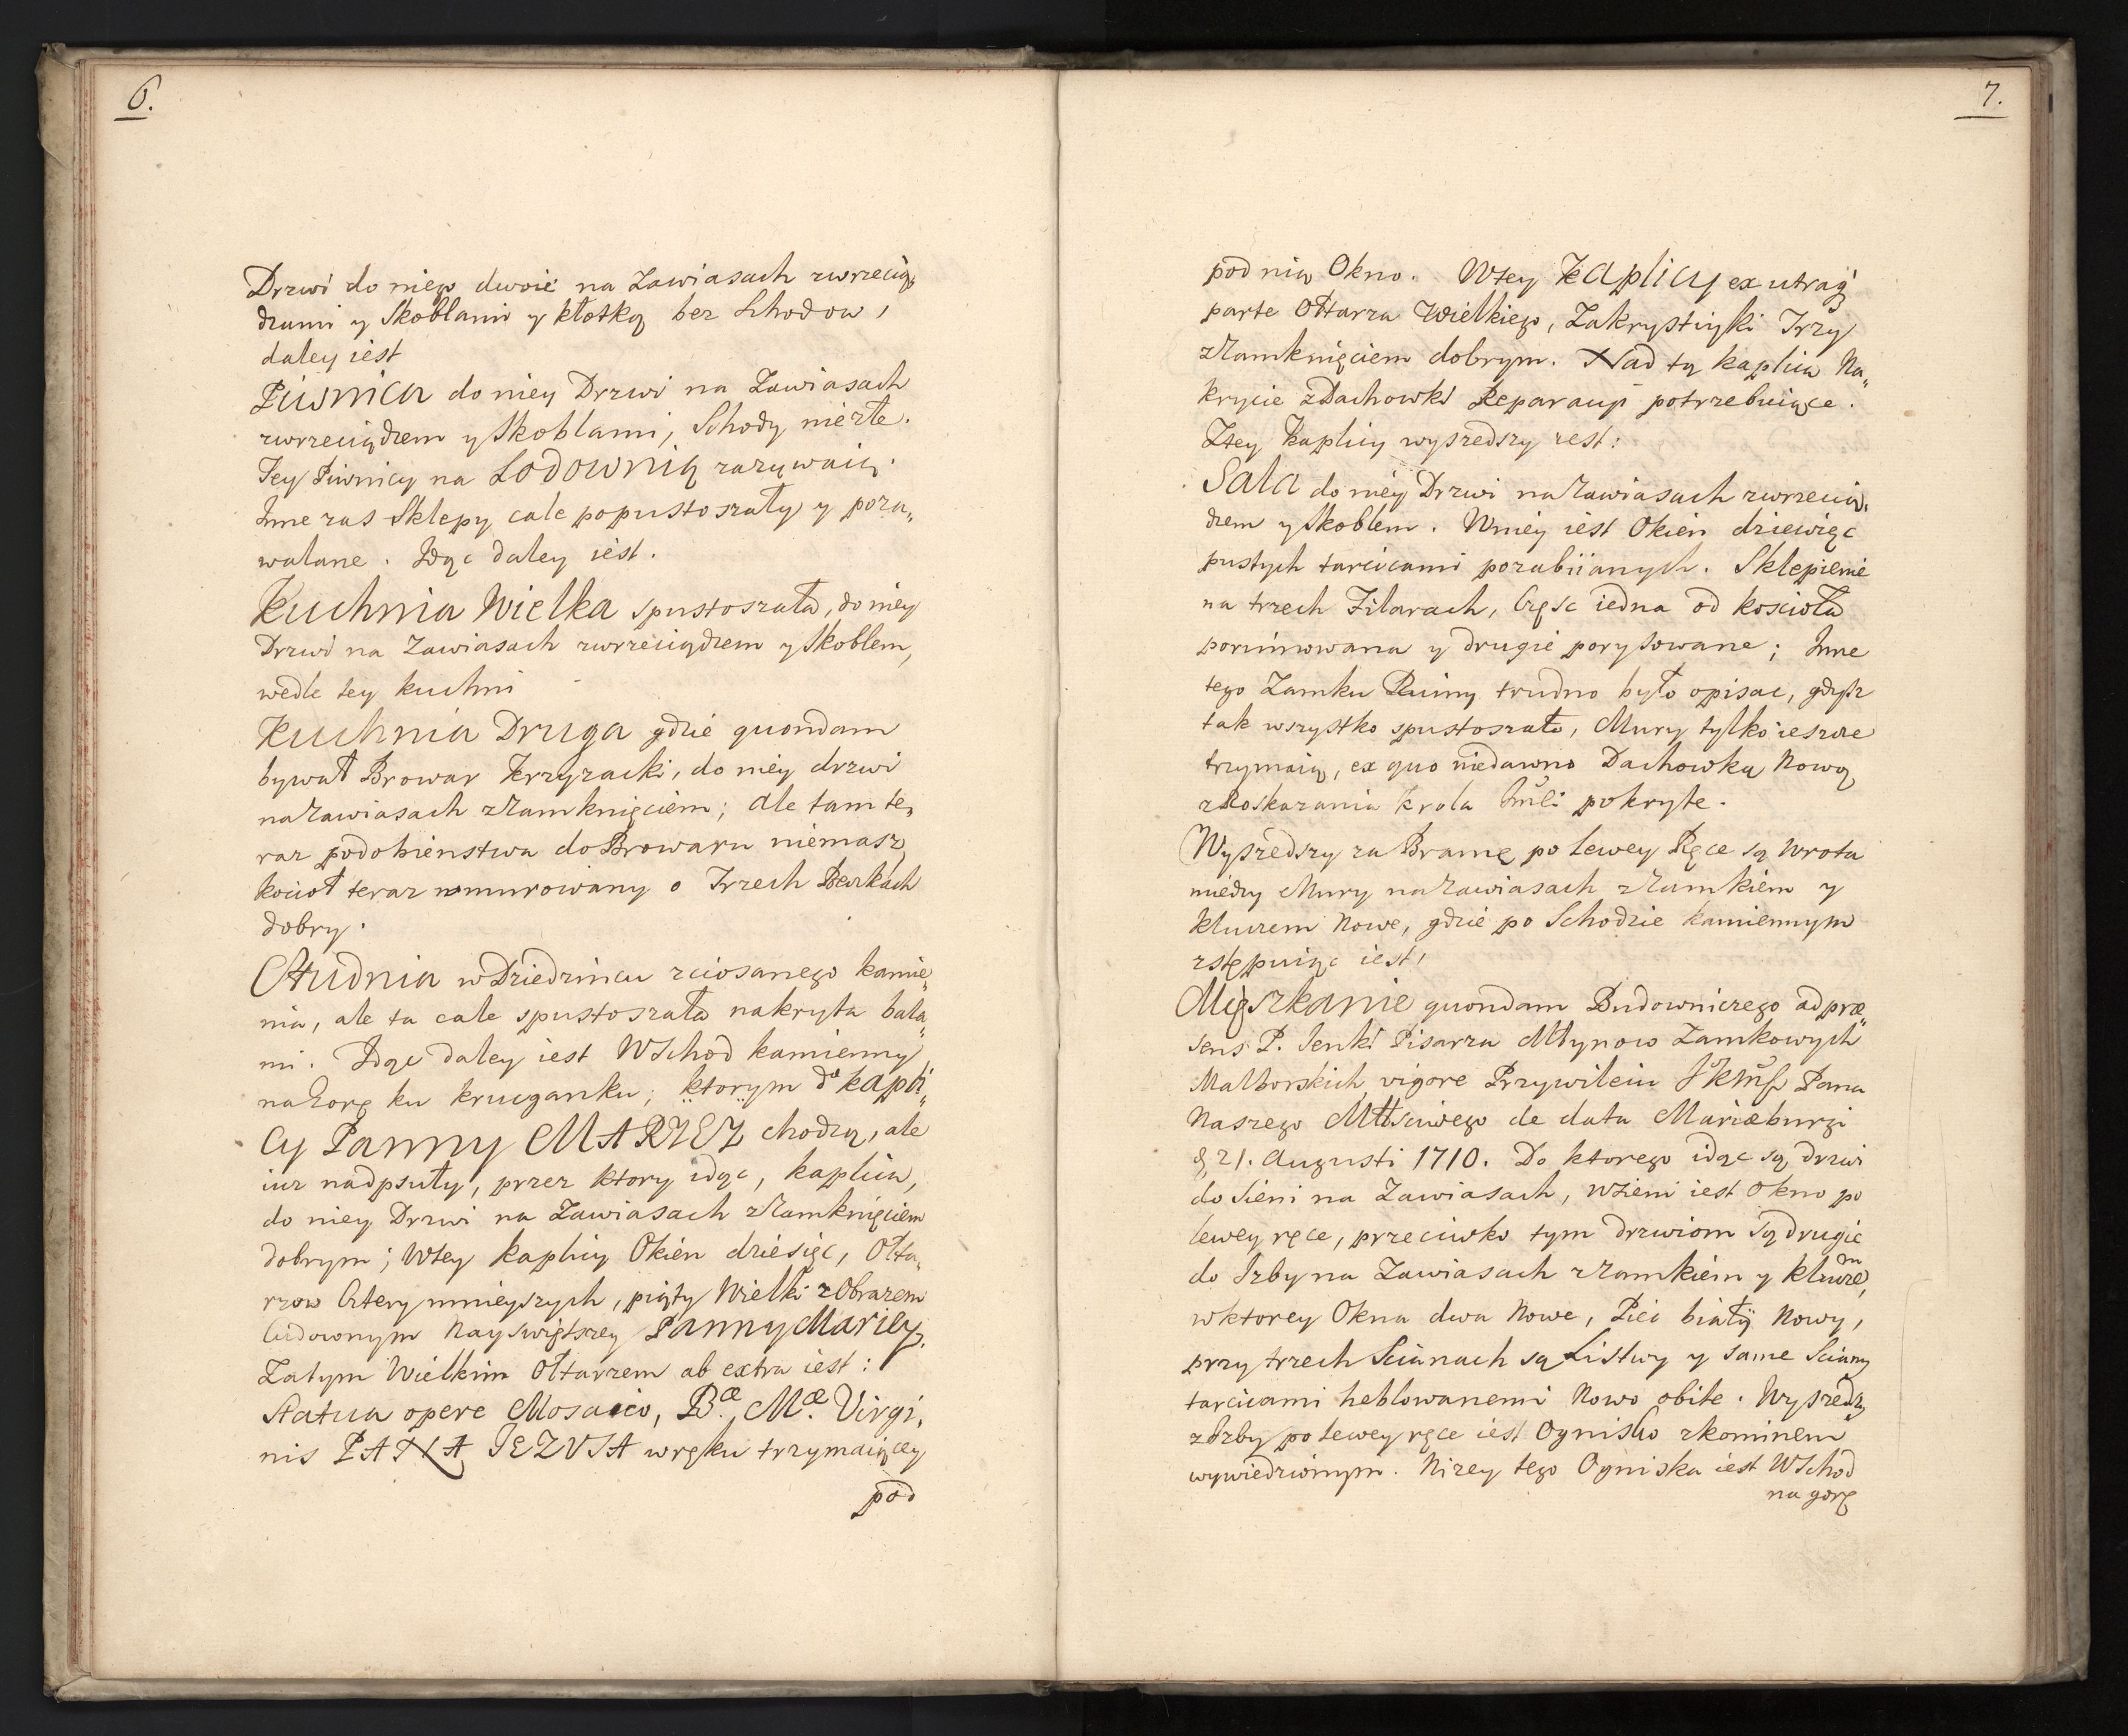 6.
Drzwi do niego dwoie na Zawiasach zwrzecią„
dzami y Skoblami y kłotką bez Schodow,
daley iest
Piwnica do niey Drzwi na Zawiasach
zwrzeciądzem y Skoblami, Schody nieżłe.
Tey Piwnicy na Lodownią zazywaią.
Inne zas Sklepy cale popustoszały y poza„
walane. Idąc daley iest.
Kuchnia Wielka spustoszała, do niey
Drzwi na Zawiasach zwrzeciądzem y Skoblem,
wedle tey kuchni
Kuchnia Druga gdzie quondam
bywał Browar Krzyzacki, do niey drzwi
na Zawiasach z Zamknięciem; ale tam te„
raz podobienstwa do Browaru niemasz,
kocioł teraz wmurowany o Trzech Beczkach
dobry.
Studnia w Dziedzincu zciosanego kamie„
nia, ale ta cale spustoszała nakryta bala„
mi. Idąc daley iest WSchod kamienny
na Gorę ku kruczganku; ktorym do kapli„
cy Panny MARYEY chodzą, ale
iuz nadpsuty, przez ktory idąc, kaplica,
do niey Drzwi na Zawiasach z Zamknięciem
dobrym; Wtey kaplicy Okien dziesięc, Ołta„
rzow Cztery mnieyszych, piąty Wielki z Obrazem
Cudownym Nayswiętszey Panny Mariey.
Zatym Wielkim Ołtarzem ab extra iest:
Statua opere Mosaico, Bæ. Mæ. Virgi„
nis PANA JEZUSA wręku trzymaiącey
pod
7.
pod nią Okno. Wtey Kaplicy ex utraq
parte Ołtarza Wielkiego, Zakrystiyki Trzy
z Zamknięciem dobrym. Nad tą kaplicą Na„
krycie z Dachowki Reparacyi potrzebuiące.
Ztey Kaplicy wyszedszy iest:
Sala do niey Drzwi na Zawiasach zwrzecią„
dzem y Skoblem. Wniey iest Okien dziewięc
pustych tarcicami pozabiianych. Sklepienie
na trzech Filarach, Częsc iedna od kosciołа
porujnowana y drugie porysowane; Inne
tego Zamku Ruiny trudno było opisac, gdysz
tak wszystko spustoszało, Mury tylko ieszcze
trzymaią, ex quo niedawno Dachowką Nową
z Roskazania Krola Imści pokryte.
Wyszedszy za Bramę po Lewey Ręce są Wrota
miedzy Mury na Zawiasach z Zamkiem y
kluczem Nowe, gdzie po Schodzie kamiennym
zstępuiąc iest,
Mięszkanie quondam Budowniczego ad præ„
sens P. Jenki Pisarza Młynow Zamkowych
Malborskich vigore Przywileiu Pana
Naszego Młłsciwego de data Mariæburgi
d. 21. Augusti 1710. Do ktorego idąc są drzwi
do Sieni na Zawiasach, WSieni iest Okno po
lewey ręce, przeciwko tym drzwiom są drugie
do Izby na Zawiasach z Zamkiem y kluczem,
wktorey Okna dwa Nowe, Piec biały Nowy,
przy trzech Scianach są Listwy y same Sciany
tarcicami heblowanemi Nowo obite. Wyszedszy
z Izby po Lewey ręce iest Ognisko zkominem
wywiedzionym. Nizey tego Ogniska iest WSchod
na gorę